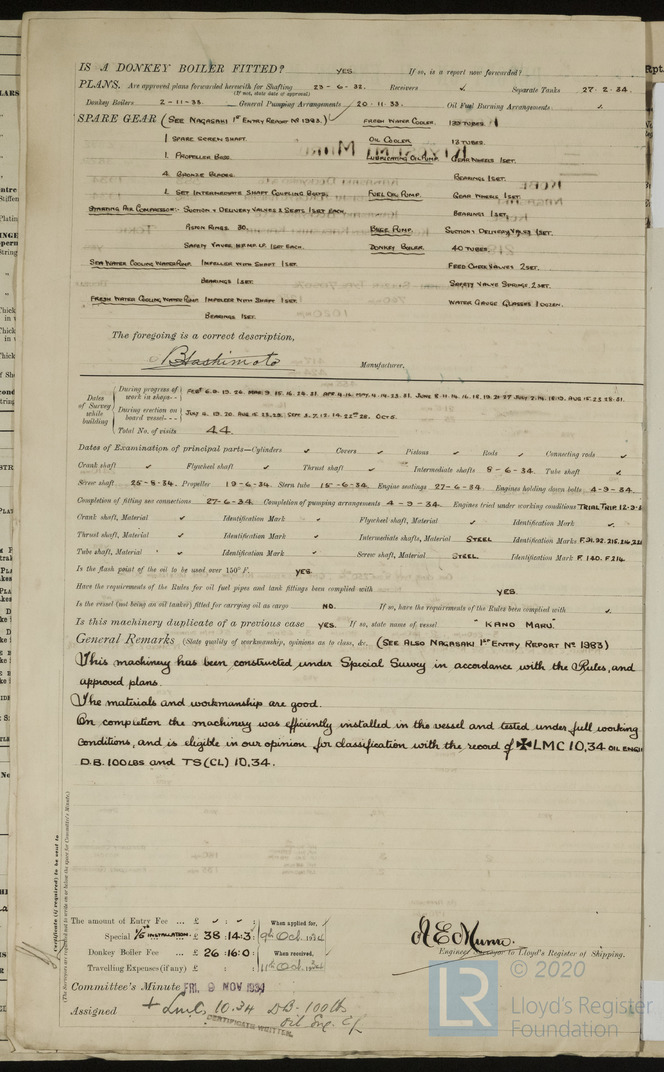 IS A DONKEY BOILER FITTED? YES If so, is a report now forwarded?
PLANS. Are approved plans forwarded herewith for Shafting 23-6-32. Receivers ✓ Separate Tanks 27-2-34.
(If not, state date of approval)
Donkey Boilers 2-11-33. General Pumping Arrangements 20-11-33. Oil Fuel Burning Arrangements ✓
SPARE GEAR (SEE NAGASAKI 1ST ENTRY REPORT No 1983) ✓ FRESH WATER COOLER. TUBES.
1 SPARE SCREW SHAFT. OIL COOLER 12 TUBES.
1. PROPELLER BOSS. LUBRICATING OIL PUMP. GEAR WHEELS 1 SET.
4. BRONZE BLADES. BEARINGS 1 SET.
1. SET INTERMEDIATE SHAFT COUPLING BOLTS. FUEL OIL PUMP. GEAR WHEELS 1 SET.
STARTING AIR COMPRESSOR:- SUCTION & DELIVERY VALVES & SEATS 1 SET EACH. BEARINGS 1 SET.
RINGS 30. BILGE PUMP. SUCTION & DELIVERY VALVES 1 SET.
SAFETY VALVE 1 SET EACH. DONKEY BOILER 40 TUBES.
SEA WATER COOLING WATER PUMP. IMPELLER WITH SHAFT 1 SET. FEED CHECK VALVES 2 SET.
BEARINGS 1 SET. SAFETY VALVE SPRINGS 2 SET.
FRESH WATER COOLING WATER PUMP. IMPELLER WITH SHAFT 1 SET. WATER GAUGE GLASSES 1 DOZEN.
BEARINGS 1 SET.
The foregoing is a correct description,
Hashimoto Manufacturer.
Dates of Survey while building
During progress of work in shops - - FEB.
During erection on board vessel - - - JULY 4. 19. 20. AUG 15. 23. 29. SEPT 3. 7. 12. 14. 22. 28. OCT 5.
Total No. of visits 44.
Dates of Examination of principal parts—Cylinders ✓ Covers ✓ Pistons ✓ Rods ✓ Connecting rods ✓
Crank shaft ✓ Flywheel shaft ✓ Thrust shaft ✓ Intermediate shafts 8-6-34. Tube shaft ✓
Screw shaft 25-8-34. Propeller 19-6-34. Stern tube 15-6-34. Engine seatings 27-6-34. Engines holding down bolts 4-9-34.
Completion of fitting sea connections 27-6-34. Completion of pumping arrangements 4-9-34. Engines tried under working conditions TRIAL TRIP. 12-9-3
Crank shaft, Material ✓ Identification Mark ✓ Flywheel shaft, Material ✓ Identification Mark ✓
Thrust shaft, Material ✓ Identification Mark ✓ Intermediate shafts, Material STEEL Identification Marks
Tube shaft, Material ✓ Identification Mark ✓ Screw shaft, Material STEEL. Identification Mark F. 140. F.214.
Is the flash point of the oil to be used over 150° F. YES.
Have the requirements of the Rules for oil fuel pipes and tank fittings been complied with YES.
Is the vessel (not being an oil tanker) fitted for carrying oil as cargo NO. If so, have the requirements of the Rules been complied with ✓
Is this machinery duplicate of a previous case YES. If so, state name of vessel "KANO MARU."
General Remarks (State quality of workmanship, opinions as to class, &c. (SEE ALSO NAGASAKI 1ST ENTRY REPORT No 1983)
This machinery has been constructed under Special Survey in accordance with the Rules, and
approved plans.
The materials and workmanship are good.
On completion the machinery was efficiently installed in the vessel and tested under full working
conditions, and is eligible in our opinion for classification with the record of ✠LMC 10.34 OIL ENGI
D.B. 100 LBS and TS(CL) 10.34.
Certificate (if required) to be sent to
(The Surveyors are requested not to write on or below the space for Committee's Minute.)
The amount of Entry Fee ... £ When applied for,
Special 1/5 INSTALLATION £ 38 :14:3 9th Oct. 1934
Donkey Boiler Fee ... £ 26 :16:0 When received,
Travelling Expenses (if any) £ 11th Oct.
Engineer Surveyor to Lloyd's Register of Shipping.
Committee's Minute FRI. 9 NOV 1934
Assigned + LMC 10.34 DB-100lb
Oil Eng.
CERTIFICATE WRITTEN.
© 2020
LR Lloyd's Register
Foundation
Rpt.